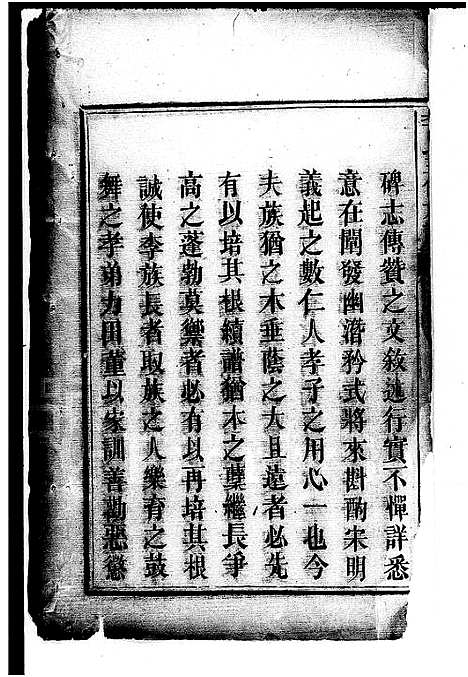 碑志傳贊之文敘述行實不憚詳悉
意在闡發幽潛矜式將來斟酌宋明
義起之數仁人孝子之用心一也今
夫族猶之木垂蔭之大且遠者必先
有以培其根續譜猶木之蘖繼長爭
高之蓬勃莫樂者必有以再培其根
誠使李族長者取族之人樂育之鼓
舞之孝弟力田董以家訓善勸惡懲